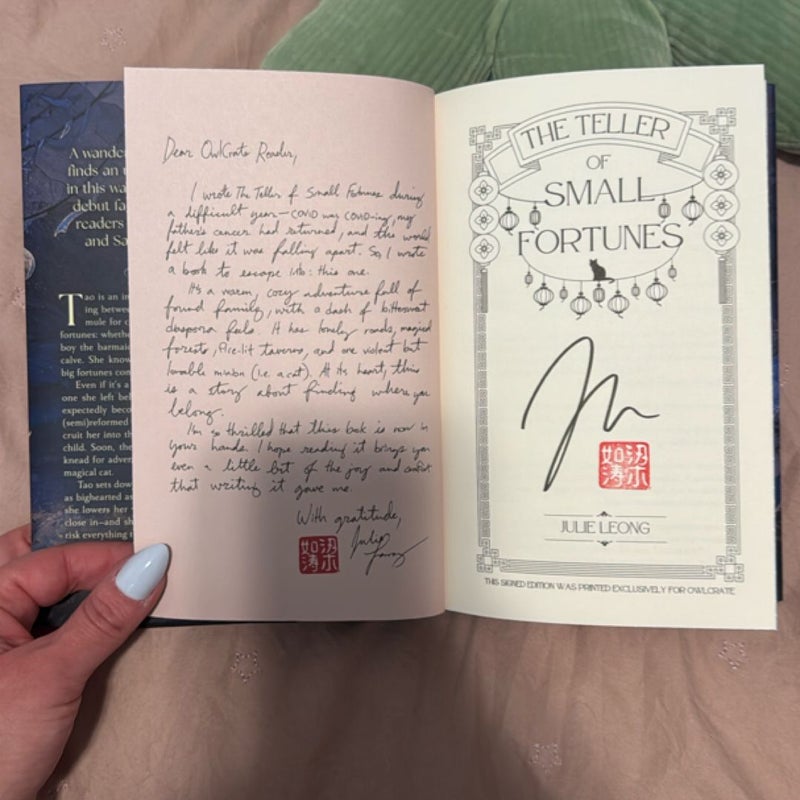 A wande
finds an
in this wa
debut fa
readers
and Sa
Tao is an in
ing betwe
mule for c
fortunes: wheth
boy the barmaid
calve. She know
big fortunes con
Even if it's a
one she left bel
expectedly beco
(semi)reformed
cruit her into th
child. Soon, the
knead for adver
magical cat.
Tao sets dow
as bighearted as
she lowers her
close in—and sh
risk everything
Dear OwlCrate Reader,
I wrote The Teller of Small Fortunes during
a difficult year—COVID was COVID-ing, my
father's cancer had returned, and the world
felt like it was falling apart. So, I wrote
a book to escape into: this one.
It's a warm, cozy adventure full of
found family, with a dash of bittersweet
diaspora feels. It has lonely roads, magical
forests, fire-lit taverns, and one violent but
lovable minion (i.e. a cat). At its heart, this
is a story about finding where you
belong.
I'm so thrilled that this book is now in
your hands. I hope reading it brings you
even a little bit of the joy and comfort
that writing it gave me.
With gratitude,
Julie
Leong
梁如涛
THE TELLER
OF
SMALL
FORTUNES
JULIE LEONG
THIS SIGNED EDITION WAS PRINTED EXCLUSIVELY FOR OWLCRATE